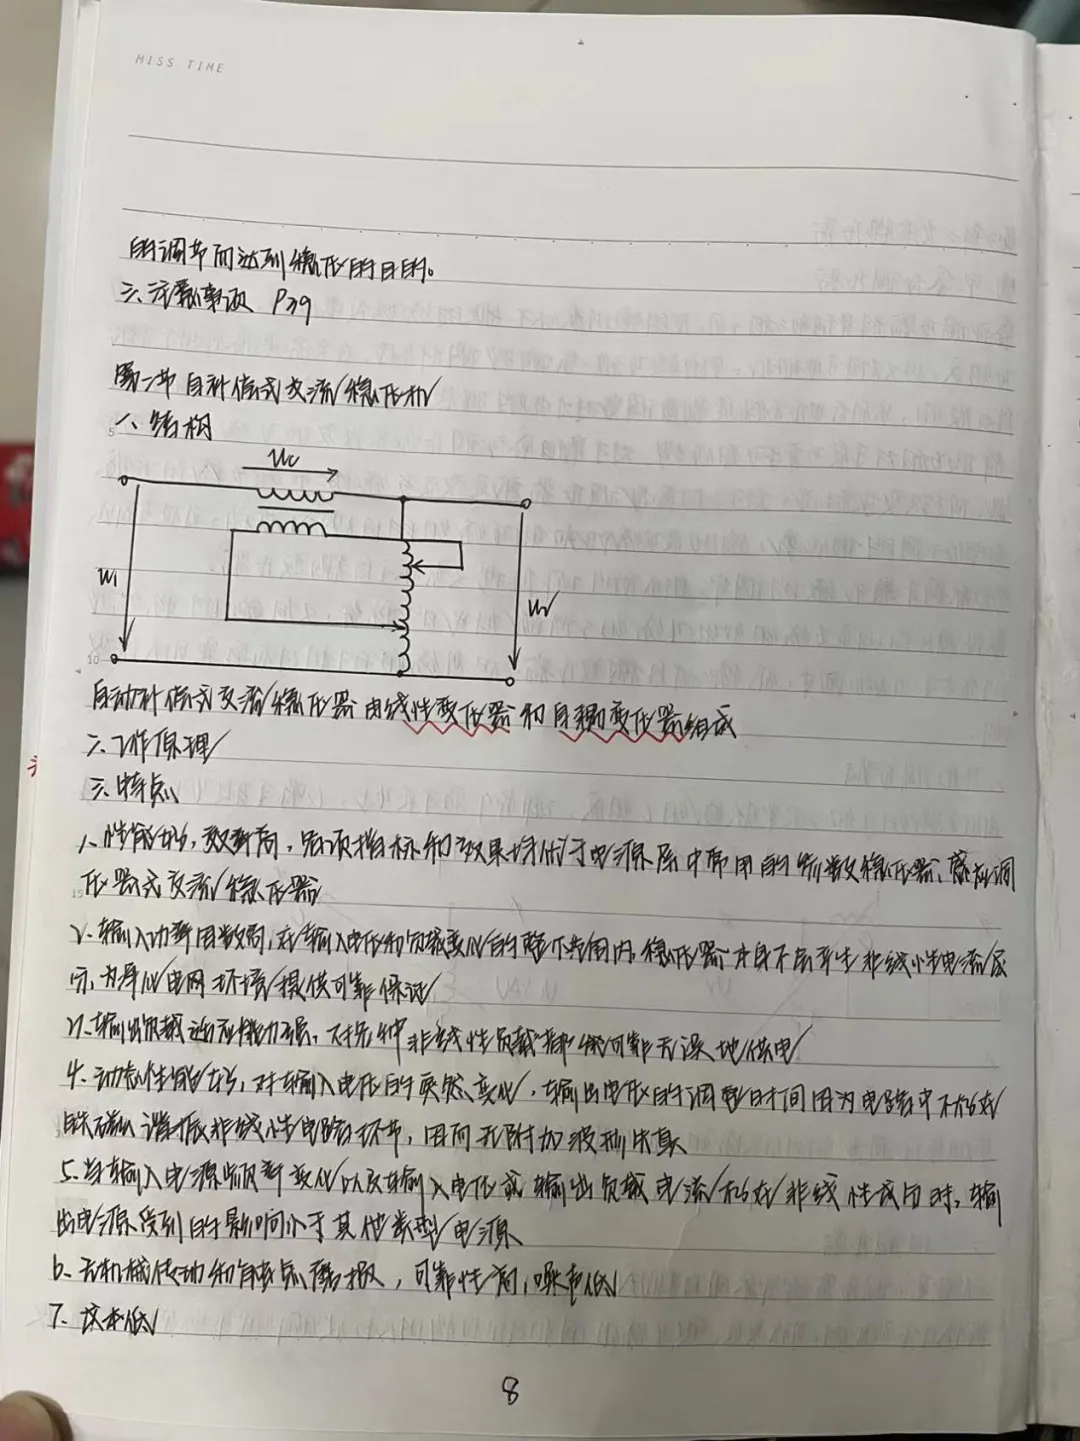 MISS TIME
的调节而达到稳压的目的。
三、注意事项 P39
第二节 自补偿式交流稳压机
一、结构
Uc
U1
U2
5
10
自动补偿式交流稳压器由线性变压器和自耦变压器组成
二、工作原理
三、特点
1、性能好,效率高,各项指标和效果均优于电源屏中常用的参数稳压器、感应调
15
压器式交流稳压器
2、输入功率因数高,在输入电压和负载变化的整个范围内,稳压器本身不会产生非线性电流成
份,为净化电网环境提供可靠保证
3、输出负载适应能力强,对各种非线性负载都能可靠无误地供电
4、动态性能好,对输入电压的突然变化,输出电压的调整时间因为电路中不存在
铁磁谐振非线性电路环节,因而无附加波形失真
5、当输入电源频率变化以及输入电压或输出负载电流存在非线性成份时,输
出电源受到的影响小于其他类型电源
6、无机械传动和触点磨损,可靠性高,噪声低
7、成本低
8